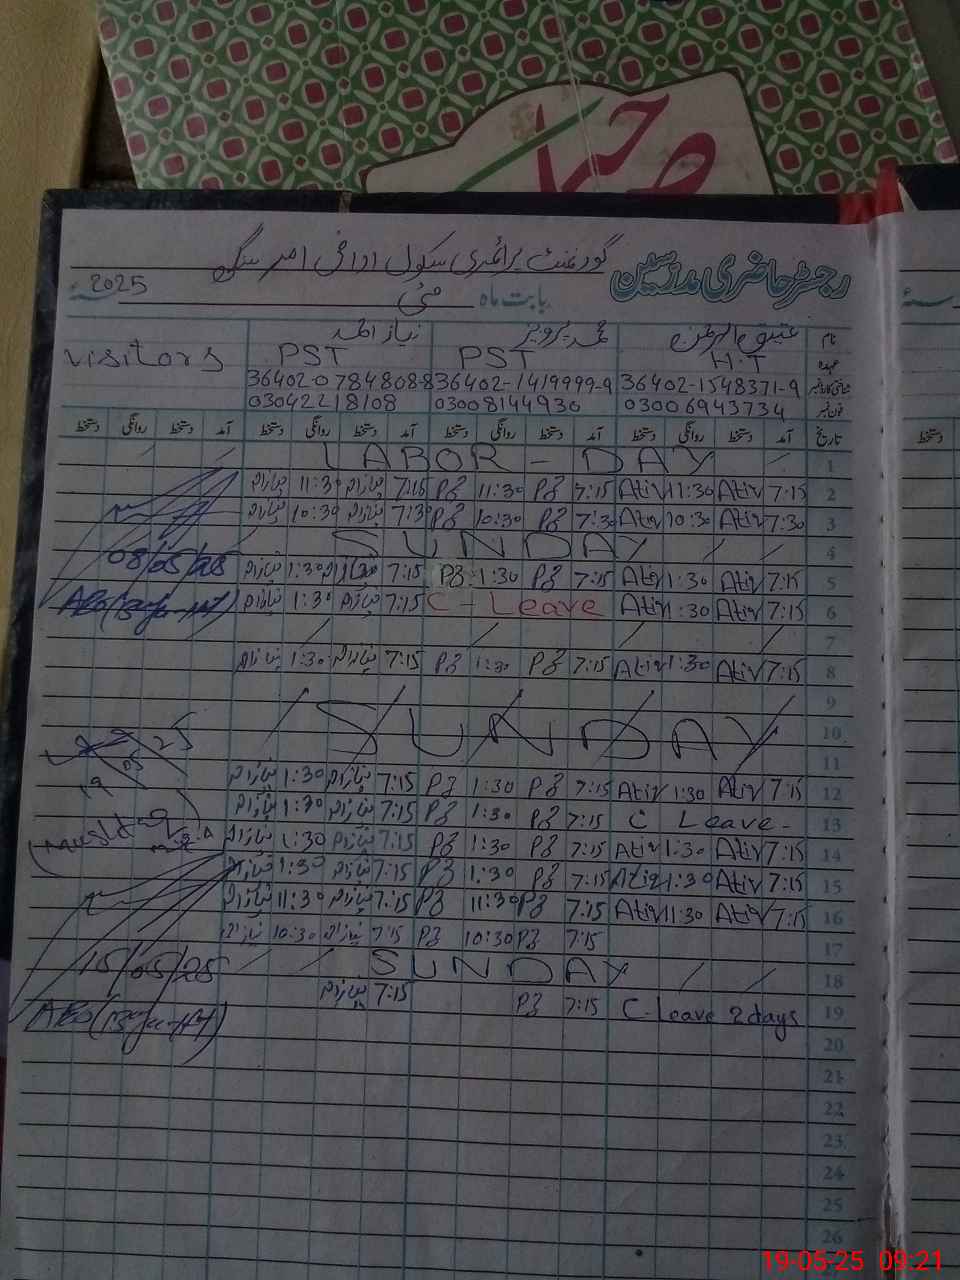 صراحی
رجسٹر حاضری مدرسین گورنمنٹ پرائمری سکول
بابت ماہ مئی 2025
نام عتیق الرحمن محمد پرویز نیاز احمد visitors
عہدہ H.T PST PST
36402-1548371-9 36402-1419999-9 36402-0784808-8
فون نمبر 03006943734 03008144930 03042218108
تاریخ آمد دستخط روانگی دستخط آمد دستخط روانگی دستخط آمد دستخط روانگی دستخط آمد دستخط روانگی دستخط
1 LABOR - DAY
2 7:15 Atiq 11:30 Atiq 7:15 PZ 11:30 PZ 7:15 نیاز احمد 11:30 نیاز احمد
3 7:30 Atiq 10:30 Atiq 7:30 PZ 10:30 PZ 7:30 نیاز احمد 10:30 نیاز احمد
4 SUNDAY
5 7:15 Atiq 1:30 Atiq 7:15 PZ 1:30 PZ 7:15 نیاز احمد 1:30 نیاز احمد 08/05/25
6 7:15 Atiq 1:30 Atiq C - Leave 7:15 نیاز احمد 1:30 نیاز احمد AEO
7
8 7:15 Atiq 1:30 Atiq 7:15 PZ 1:30 PZ 7:15 نیاز احمد 1:30 نیاز احمد
9
10 SUNDAY
11
12 7:15 Atiq 1:30 Atiq 7:15 PZ 1:30 PZ 7:15 نیاز احمد 1:30 نیاز احمد 19 05 25
13 C Leave - 7:15 PZ 1:30 PZ 7:15 نیاز احمد 1:30 نیاز احمد
14 7:15 Atiq 1:30 Atiq 7:15 PZ 1:30 PZ 7:15 نیاز احمد 1:30 نیاز احمد
15 7:15 Atiq 1:30 Atiq 7:15 PZ 1:30 PZ 7:15 نیاز احمد 1:30 نیاز احمد
16 7:15 Atiq 11:30 Atiq 7:15 PZ 11:30 PZ 7:15 نیاز احمد 11:30 نیاز احمد
17 7:15 PZ 10:30 PZ 7:15 نیاز احمد 10:30 نیاز احمد
18 SUNDAY 15/05/25
19 C-Leave 2 days 7:15 PZ 7:15 نیاز احمد AEO
20
21
22
23
24
25
26
دستخط
19-05-25 09:21